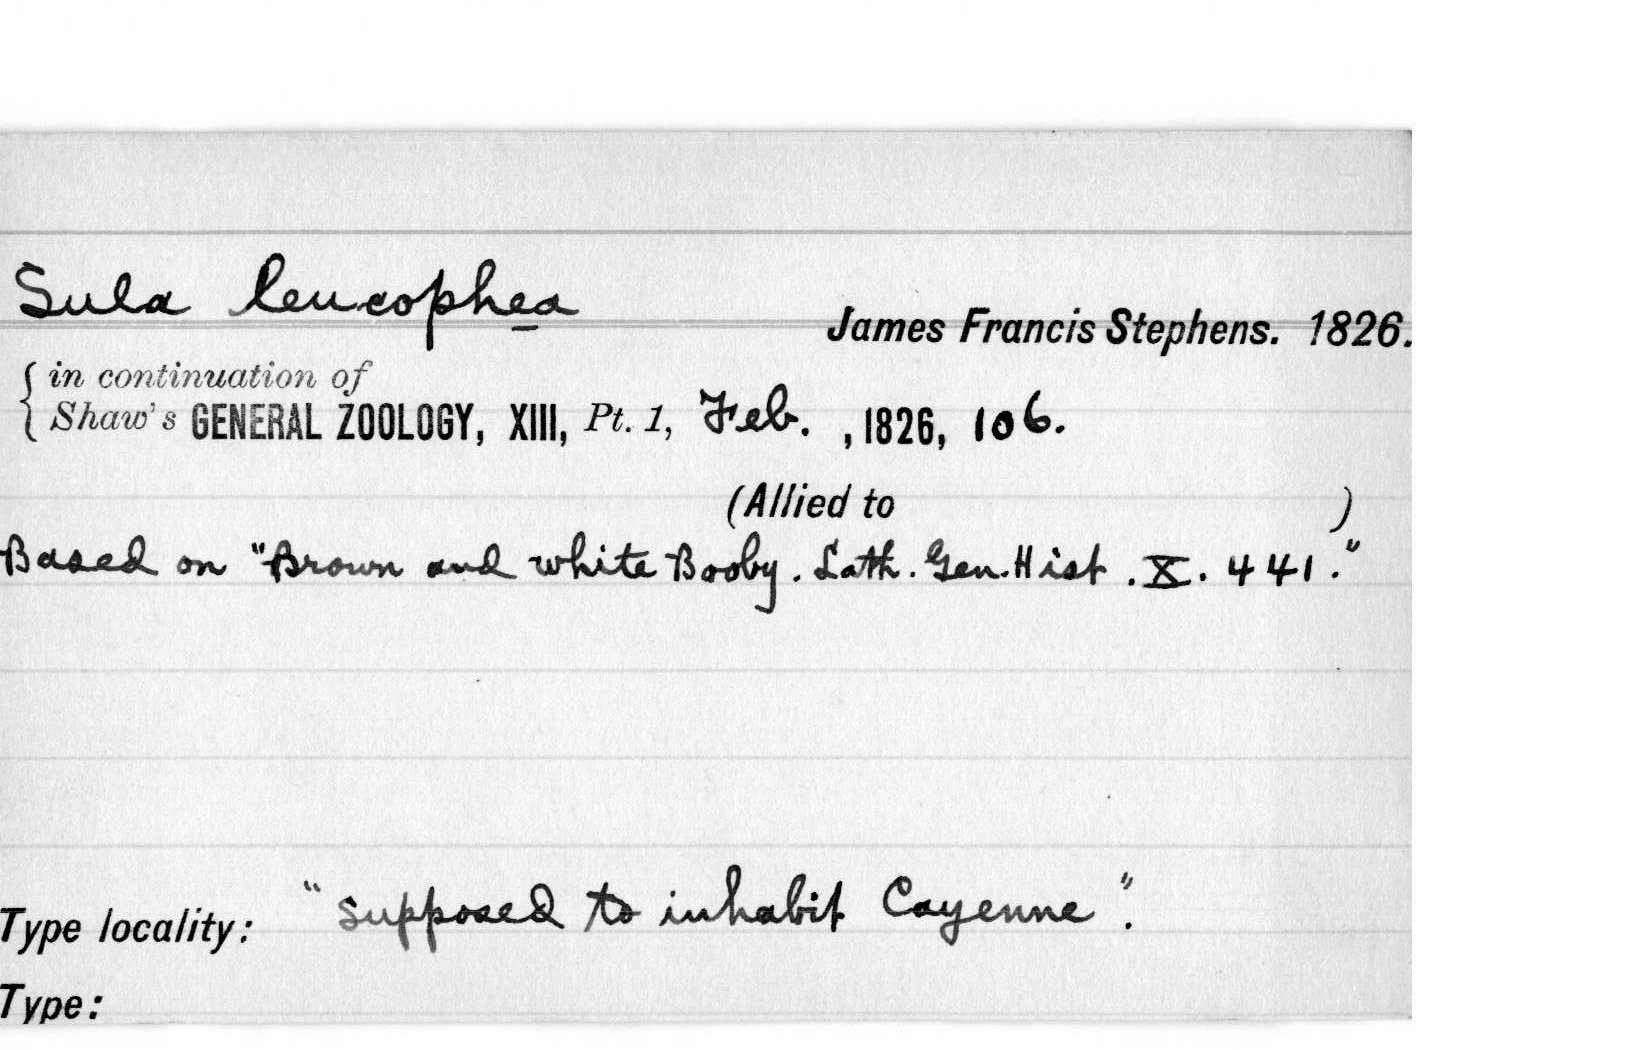 Sula leucophea
James Francis Stephens. 1826.
{ in continuation of
Shaw's GENERAL ZOOLOGY, XIII, Pt. 1, Feb. , 1826, 106.
(Allied to )
Based on "Brown and white Booby. Lath. Gen. Hist. X. 441."
Type locality: "supposed to inhabit Cayenne".
Type: